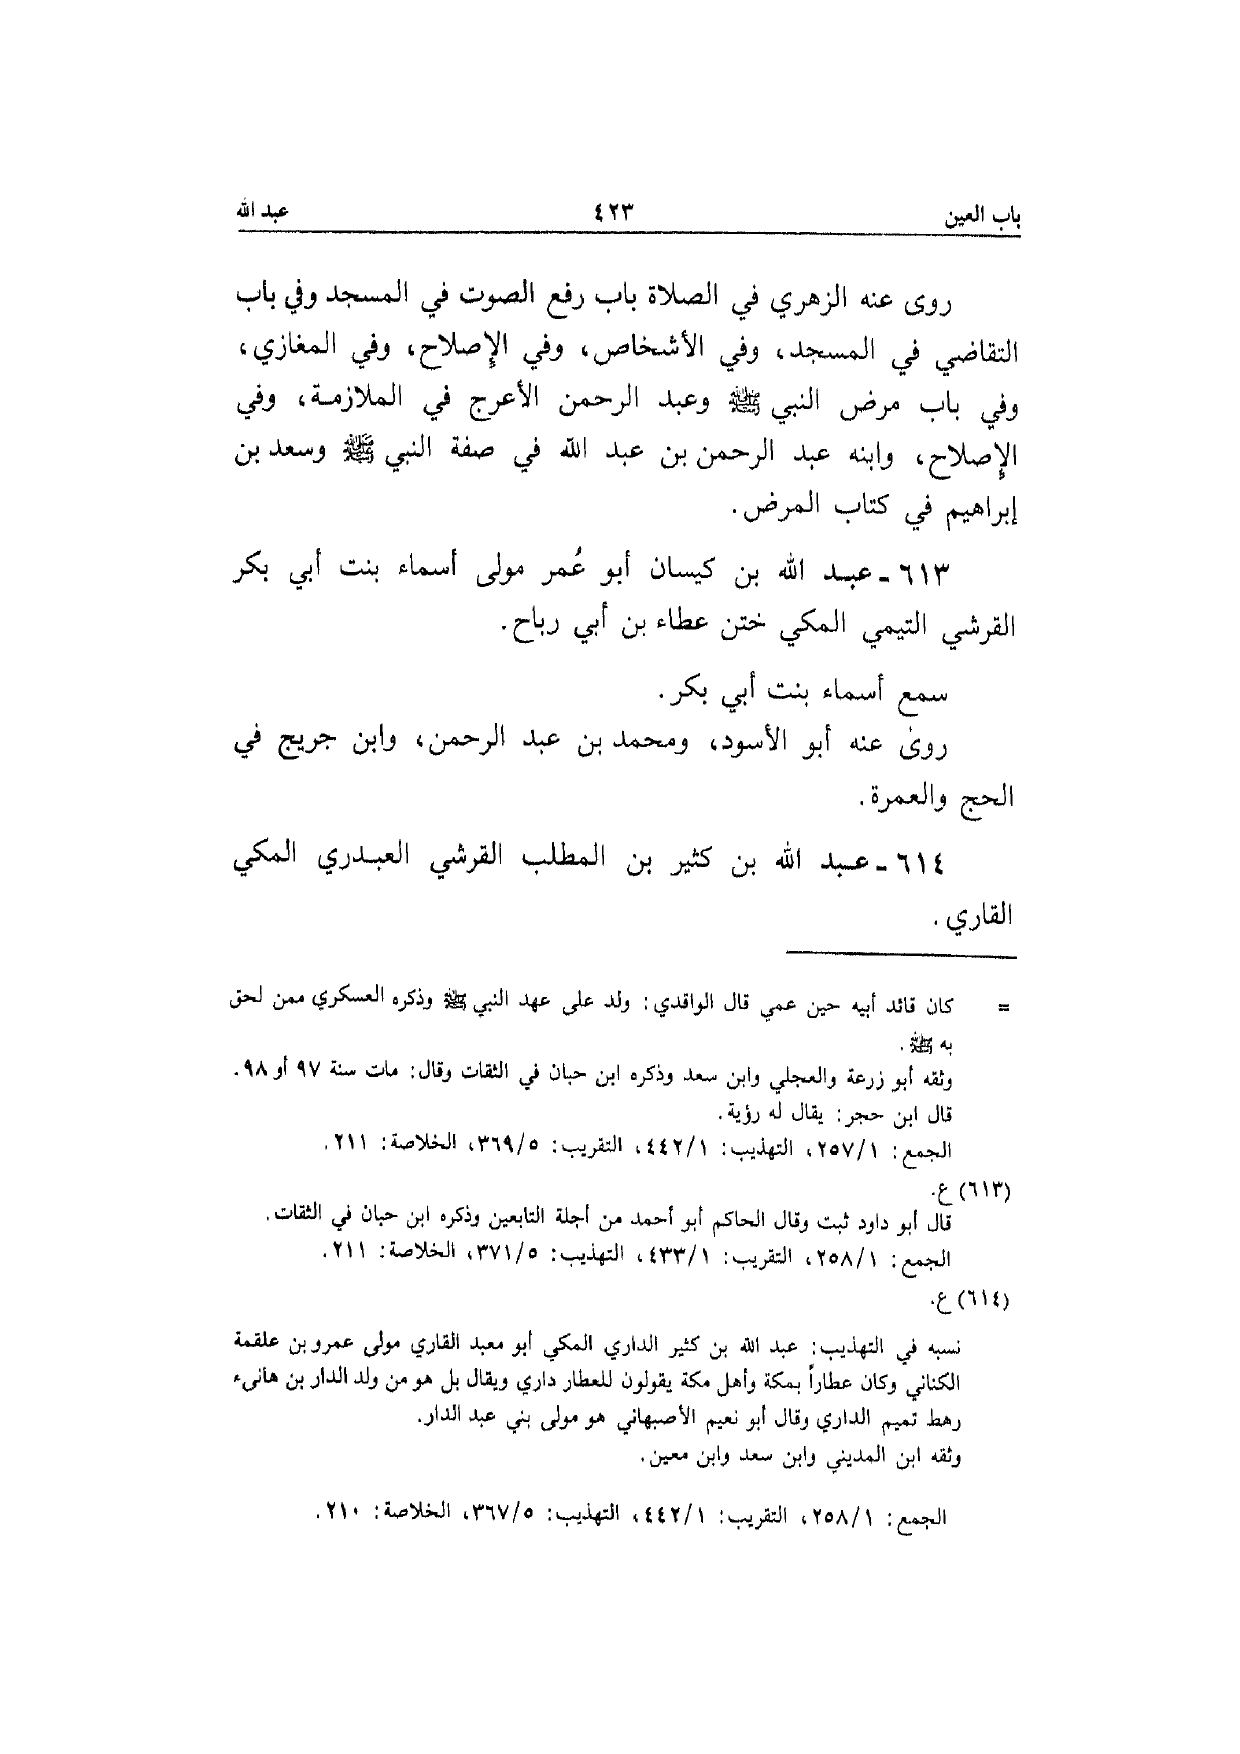 باب العين ٤٢٣ عبد الله
روى عنه الزهري في الصلاة باب رفع الصوت في المسجد وفي باب
التقاضي في المسجد، وفي الأشخاص، وفي الإصلاح، وفي المغازي،
وفي باب مرض النبي ﷺ وعبد الرحمن الأعرج في الملازمة، وفي
الإصلاح، وابنه عبد الرحمن بن عبد الله في صفة النبي ﷺ وسعد بن
إبراهيم في كتاب المرض.
٦١٣ - عبد الله بن كيسان أبو عُمر مولى أسماء بنت أبي بكر
القرشي التيمي المكي ختن عطاء بن أبي رباح.
سمع أسماء بنت أبي بكر.
روى عنه أبو الأسود، ومحمد بن عبد الرحمن، وابن جريج في
الحج والعمرة.
٦١٤ - عبد الله بن كثير بن المطلب القرشي العبدري المكي
القاري.
= كان قائد أبيه حين عمي قال الواقدي: ولد على عهد النبي ﷺ وذكره العسكري ممن لحق
به ﷺ.
وثقه أبو زرعة والعجلي وابن سعد وذكره ابن حبان في الثقات وقال: مات سنة ٩٧ أو ٩٨.
قال ابن حجر: يقال له رؤية.
الجمع: ٢٥٧/١، التهذيب: ٤٤٢/١، التقريب: ٣٦٩/٥، الخلاصة: ٢١١.
(٦١٣) ع.
قال أبو داود ثبت وقال الحاكم أبو أحمد من أجلة التابعين وذكره ابن حبان في الثقات.
الجمع: ٢٥٨/١، التقريب: ٤٣٣/١، التهذيب: ٣٧١/٥، الخلاصة: ٢١١.
(٦١٤) ع.
نسبه في التهذيب: عبد الله بن كثير الداري المكي أبو معبد القاري مولى عمرو بن علقمة
الكناني وكان عطاراً بمكة وأهل مكة يقولون للعطار داري ويقال بل هو من ولد الدار بن هانىء
رهط تميم الداري وقال أبو نعيم الأصبهاني هو مولى بني عبد الدار.
وثقه ابن المديني وابن سعد وابن معين.
الجمع: ٢٥٨/١، التقريب: ٤٤٢/١، التهذيب: ٣٦٧/٥، الخلاصة: ٢١٠.